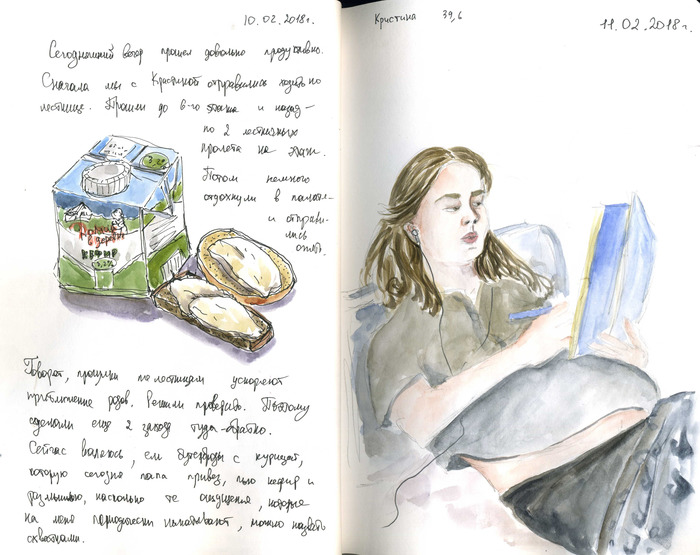 10.02.2018г.
Сегодняшний вечер прошел довольно продуктивно.
Сначала мы с Кристиной отправились ходить по
лестнице. Прошли до 6-го этажа и назад –
по 2 лестничных
пролета на этаж.
Потом немного
отдохнули в палате
и отправи-
лись
опять.
3,2%
Домик
в деревне
КЕФИР
3,2%
Говорят, прогулки по лестницам ускоряют
приближение родов. Решили проверить. Поэтому
сделали еще 2 захода туда-обратно.
Сейчас валяюсь, ем бутерброды с курицей,
которую сегодня папа привез, пью кефир и
размышляю, насколько те ощущения, которые
на меня периодически накатывают, можно назвать
схватками.
Кристина 39,6
11.02.2018г.